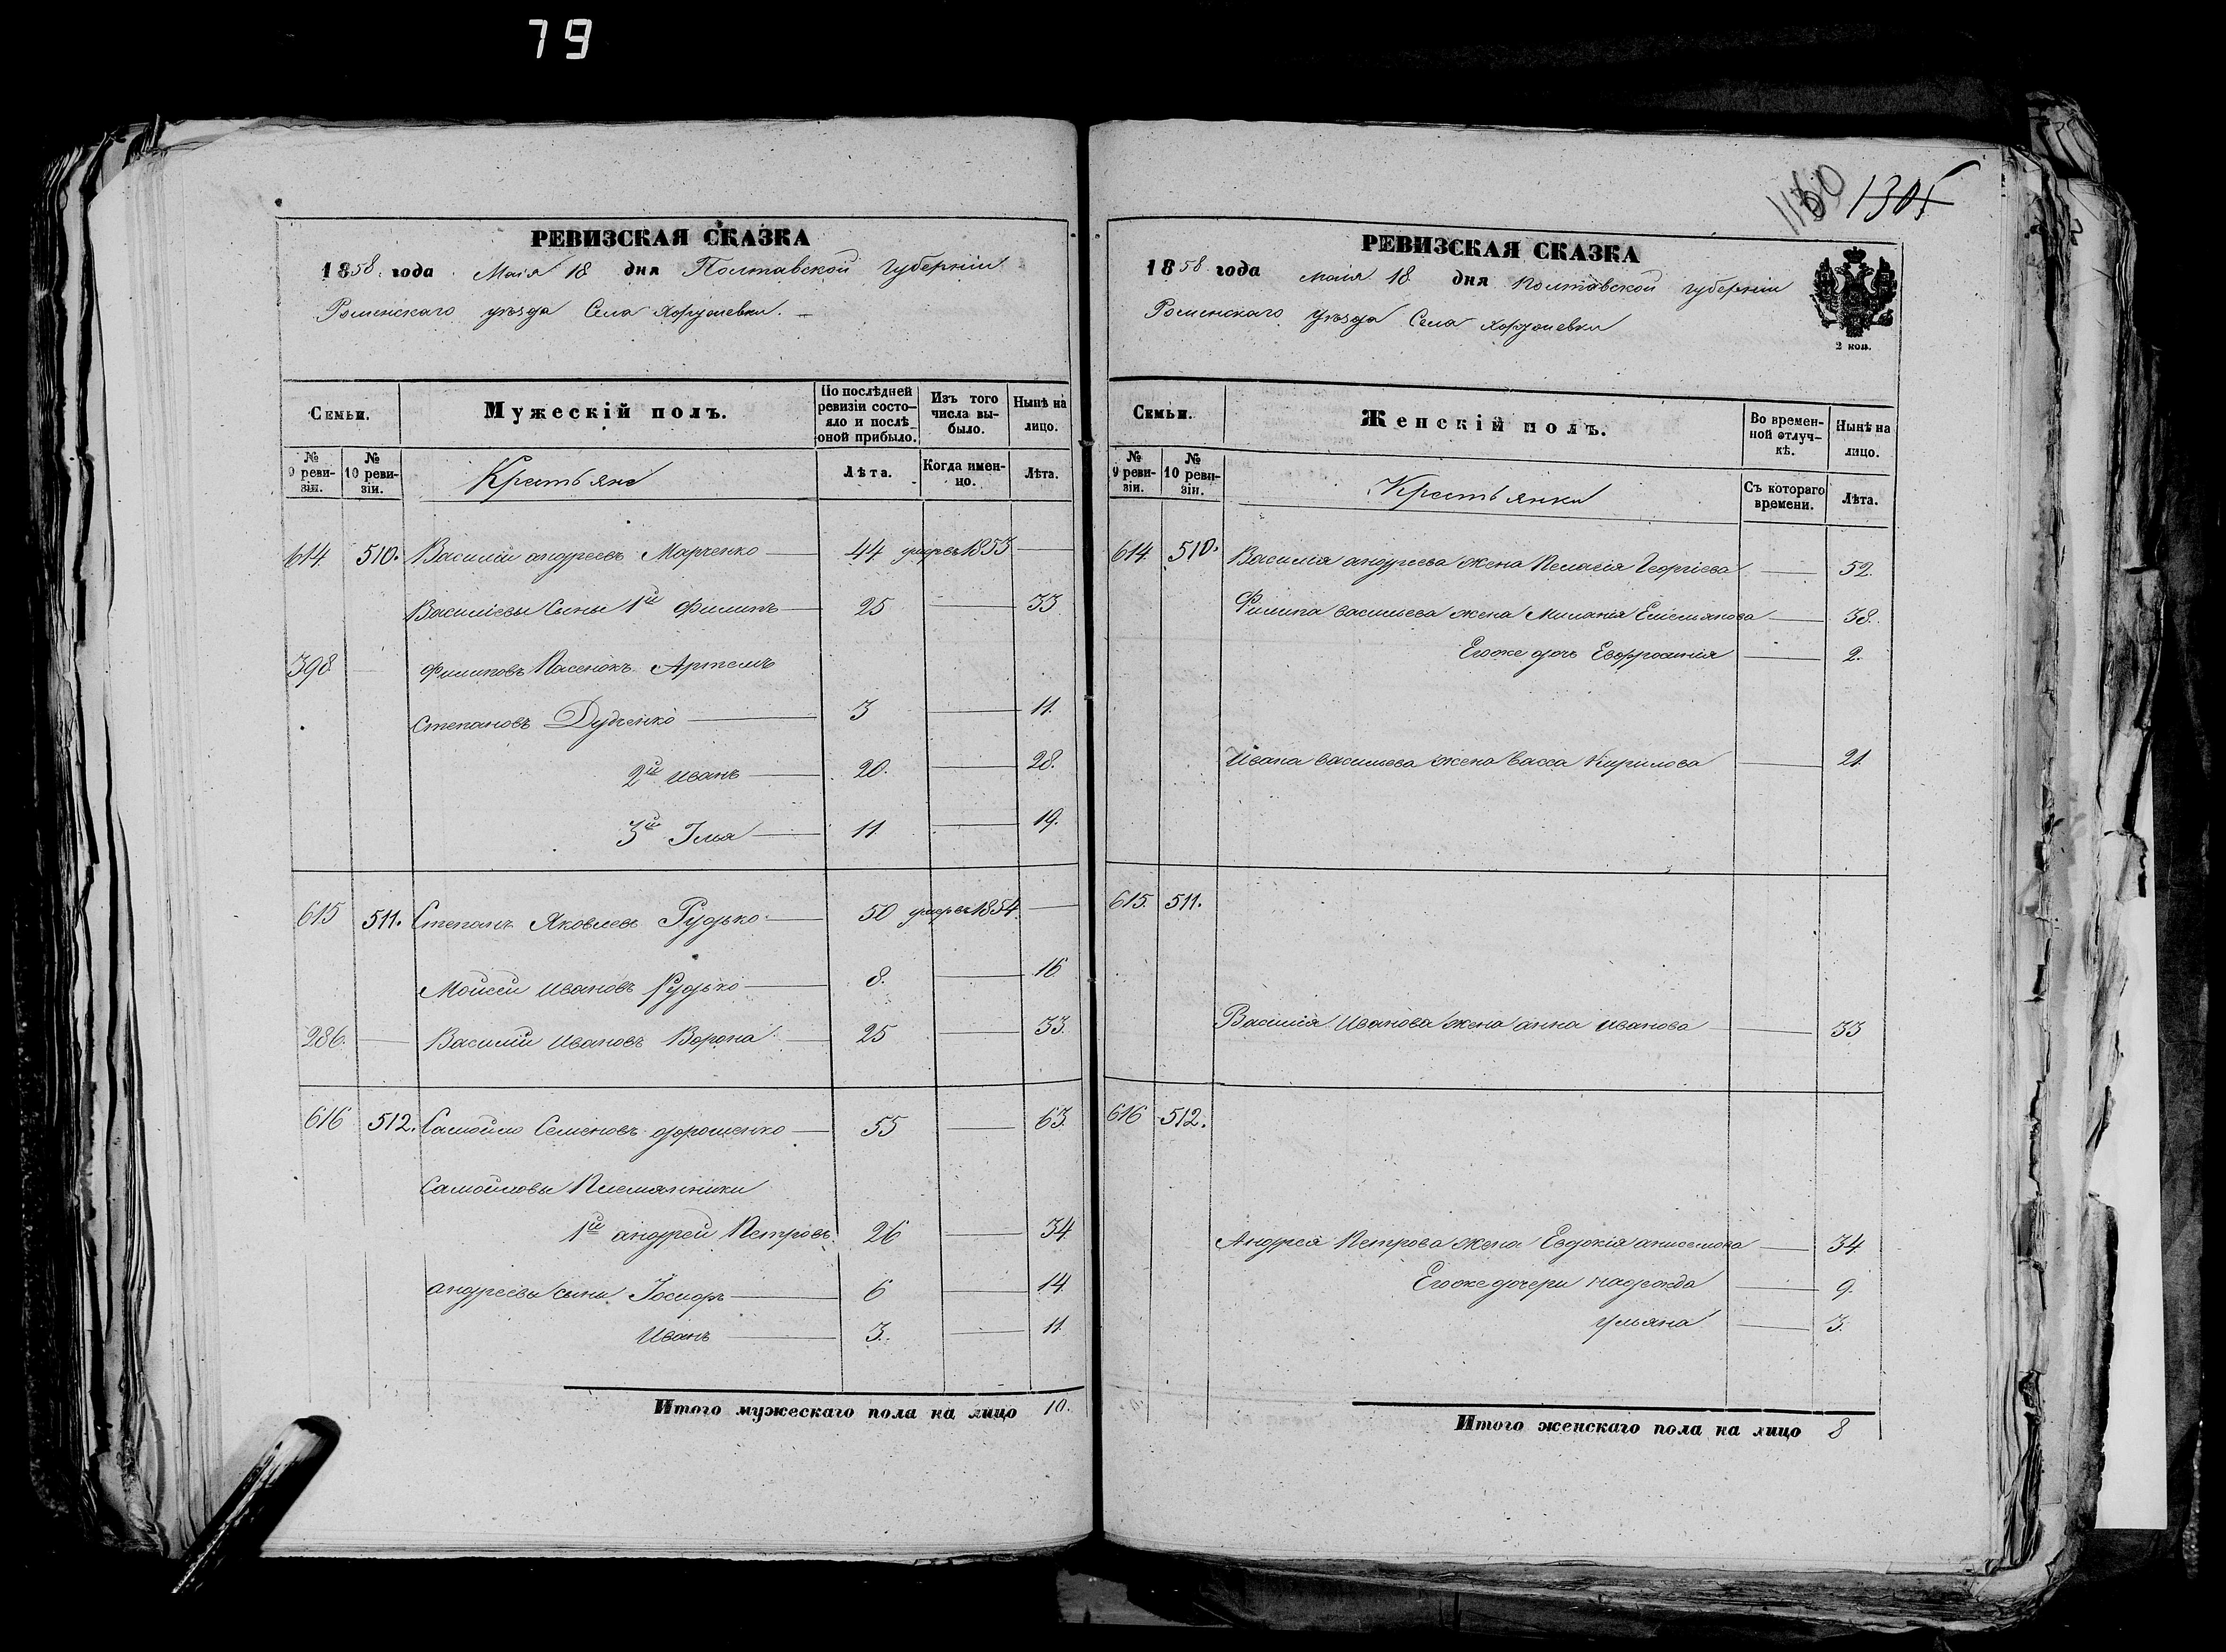 79
РЕВИЗСКАЯ СКАЗКА
1858. года Маія 18 дня Полтавской Губерніи
Роменскаго уѣзда Села Хоружевки.
Семьи.
Мужескій полъ.
По послѣдней ревизіи состо-яло и послѣ оной прибыло.
Изъ того числа вы-было.
Нынѣ на лицо.
№ 9 реви-зіи.
№ 10 реви-зіи.
Крестьяне
Лѣта.
Когда имен-но.
Лѣта.
614. 510. Василій андреевъ Марченко 44 умеръ 1853
Васильевы Сыны 1й Филипъ 25 33
398 Филиповъ Пасенокъ Артемъ
Степановъ Дудченко 3 11.
2й иванъ 20. 28.
3й Илья 11 19.
615 511. Степанъ Яковлевъ Рудько 50 умеръ 1854.
Мойсей ивановъ Рудько 8. 16
286. Василій ивановъ Ворона 25 33.
616 512. Самойло Семеновъ дорошенко 55 63.
Самойловы Племянники
1й андрей Петровъ 26 34.
андреевы сыны Іосифъ 6 14.
иванъ 3. 11
Итого мужескаго пола на лицо 10.
1160 1305
РЕВИЗСКАЯ СКАЗКА
1858 года маія 18 дня Полтавской губерніи
Роменскаго уѣзда Села Хоружевки
2 коп.
Семьи.
Женскій полъ.
Во времен-ной отлуч-кѣ.
Нынѣ на лицо.
№ 9 реви-зіи.
№ 10 реви-зіи.
Крестьянки
Съ котораго времени.
Лѣта.
614. 510. Василія андреева жена Пелагія Георгіева 52.
Филипа васильева жена Миланія Емельянова 38.
Егоже дочь Евфросинія 2.
Ивана васильева жена Васса Кирилова 21
615. 511.
Василія Иванова жена анна иванова 33
616 512.
Андрея Петрова жена Евдокія анисимова 34
Егоже дочери надежда 9.
ульяна 3.
Итого женскаго пола на лицо 8